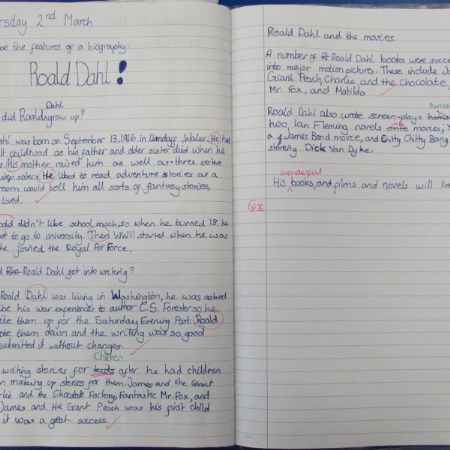 rsday 2nd March
the features of a biography.
Roald Dahl!
Dahl
did Roald grow up?
ahl was born on September 13, 1916 in Llandaff, Wales. He had
childhood as his father and older sister died when he
his mother, raised him as well as three sister
step sisters. He liked to read adventure stories as a
mom would tell him all sorts of fantasy stories,
loved.
didn't like school much, so when he turned 18 he
t to go to university. Then WWII started when he was
he joined the Royal Air Force.
Roald Dahl get into writing?
Roald Dahl was living in Washington, he was asked
be his war experiences to author C.S. Forester so he
ite them up for the Saturday Evening Post. Roald
ote them down and the writing was so good
submitted it without changes.
Children
writing stories for after he had children
n making up stories for them. James and the Giant
lie and the Chocolate Factory, Fantastic Mr. Fox, and
James and the Giant Peach was his first child
it was a great success.
Roald Dahl and the movies.
A number of Roald Dahl books were succe
into major motion picture. These include Ja
Giant Peach, Charlie and the Chocolate,
Mr. Fox, and Matilda.
Roald Dahl also wrote screen-plays
two, Ian Fleming novels into movies, Y
a James Bond movie, and Chitty Chitty Bang
starring Dick Van Dyke.
wonderful
His books, and films and novels will liv